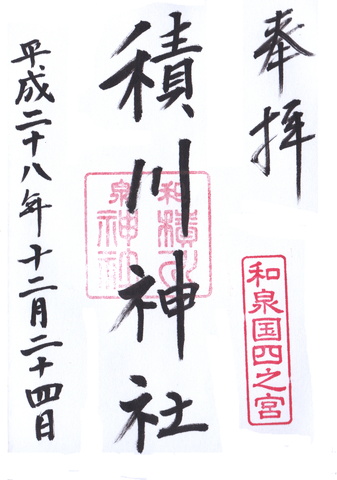 奉拝
和泉国四之宮
積川神社
和泉
積川
神社
平成二十八年十二月二十四日